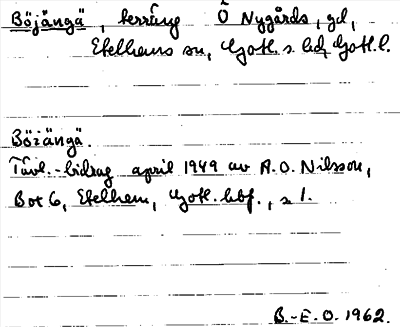 Böjängä, terräng Ö Nygårds, gd,
Etelhems sn, Gotl. s. hd, Gotl. l.
Böjängä.
Tävl.-bidrag april 1949 av A.O. Nilsson,
Box 6, Etelhem, Gotl. hbf., s 1.
B.-E.O. 1962.